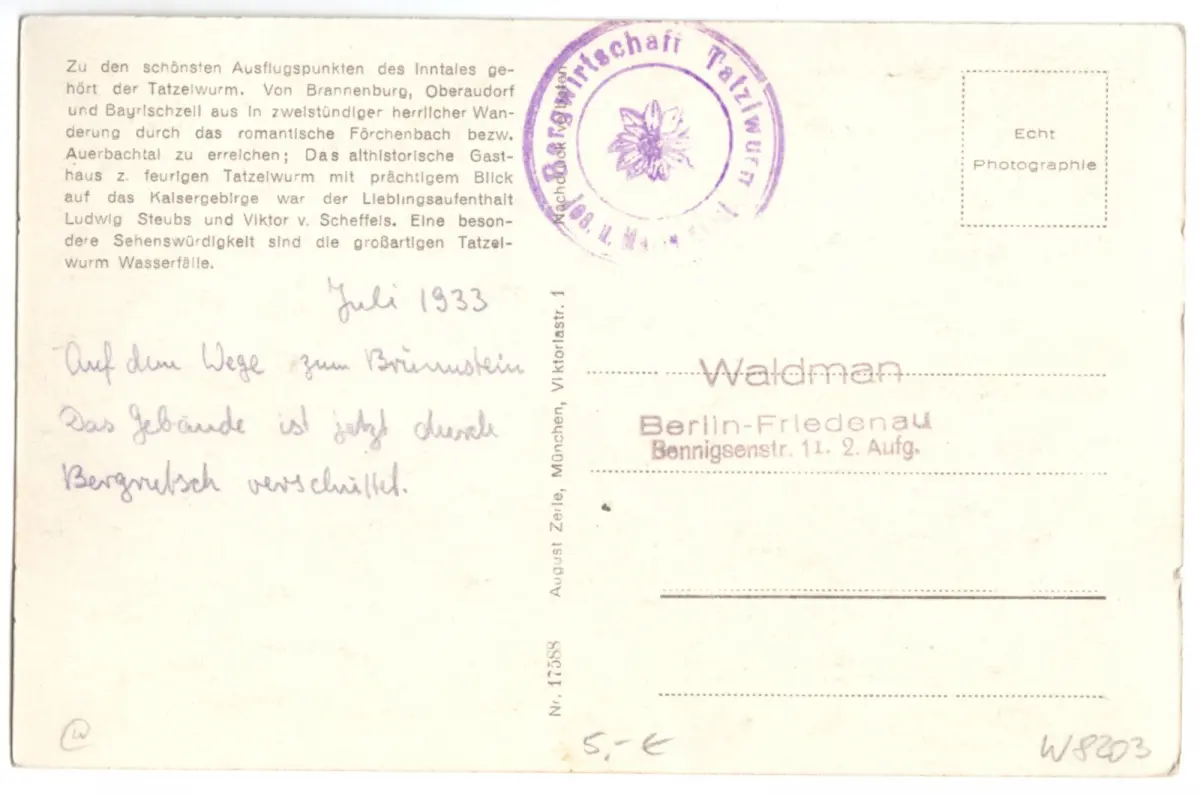 Zu den schönsten Ausflugspunkten des Inntales ge-
hört der Tatzelwurm. Von Brannenburg, Oberaudorf
und Bayrischzell aus in zweistündiger herrlicher Wan-
derung durch das romantische Förchenbach bezw.
Auerbachtal zu erreichen; Das althistorische Gast-
haus z. feurigen Tatzelwurm mit prächtigem Blick
auf das Kaisergebirge war der Lieblingsaufenthalt
Ludwig Steubs und Viktor v. Scheffels. Eine beson-
dere Sehenswürdigkeit sind die großartigen Tatzel-
wurm Wasserfälle.
Juli 1933
Auf dem Wege zum Brünnstein
Das Gebäude ist jetzt durch
Bergrutsch verschüttet.
Bergwirtschaft Tatzlwurm
Nachdruck verboten
August Zerle, München, Viktoriastr. 1
Nr. 17588
Echt
Photographie
Waldman
Berlin-Friedenau
Bennigsenstr. 11. 2. Aufg.
W
5,- €
W8203